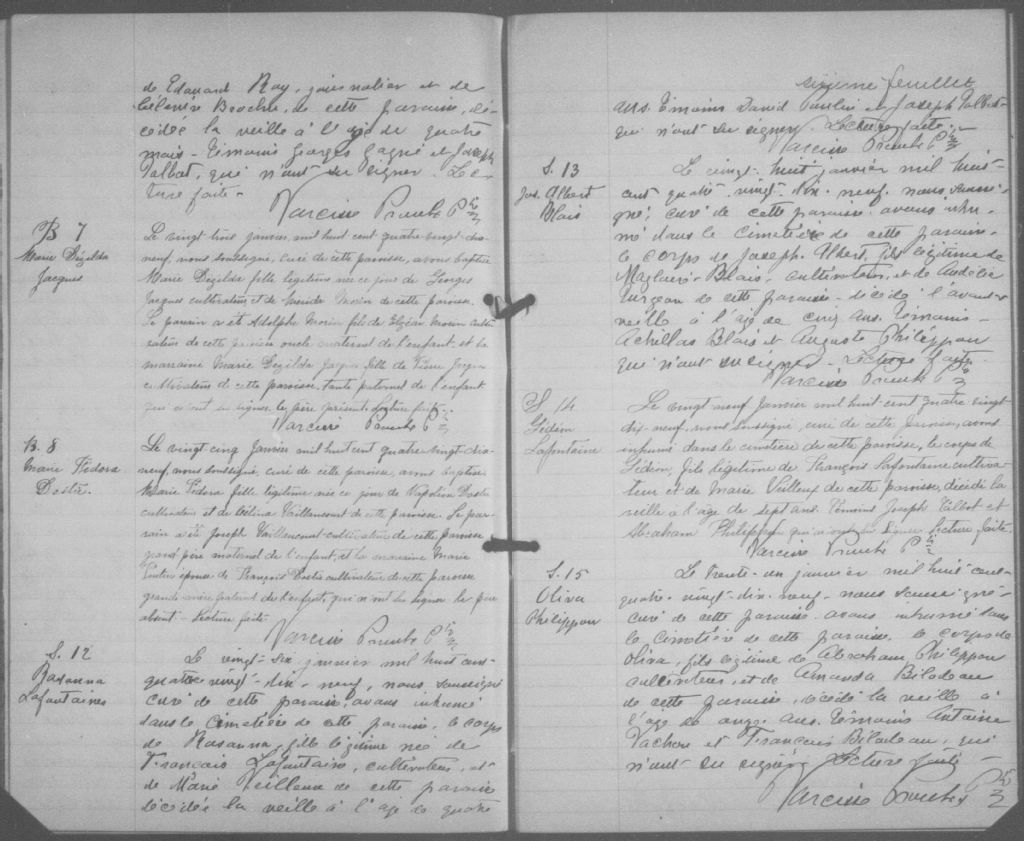 de Edouard Roy, journalier et de
Célanire Boucher, de cette paroisse, dé-
cédée la veille à l'age de quatre
mois - Témoins Georges Gagné et Joseph
Talbot, qui n'ont su signer. Lec-
ture faite -
Narcisse Proulx Ptre
B 7
Marie Dézilda
Jacques
Le vingt trois janvier, mil huit cent quatre vingt dix
neuf, nous soussigné, curé de cette paroisse, avons baptisé
Marie Dézilda fille légitime née ce jour de Georges
Jacques cultivateur et de Morin de cette paroisse.
Le parrain a été Adolphe Morin fils de Elzéar Morin culti
vateur de cette paroisse oncle maternel de l'enfant et la
marraine Marie Dézilda Jacques fille de Pierre Jacques
cultivateur de cette paroisse, tante paternel de l'enfant
qui n'ont su signer le père présent. Lecture faite.
Narcisse Proulx Ptre
B. 8
Marie Fédora
Dostie.
Le vingt cinq Janvier mil huit cent quatre vingt dix
neuf, nous soussigné, curé de cette paroisse, avons baptisé
Marie Fédora fille légitime née ce jour de Napoléon Dostie
cultivateur et de Célina Vaillancourt de cette paroisse. Le par-
rain a été Joseph Vaillancourt cultivateur de cette paroisse
grand père maternel de l'enfant, et la marraine Marie
épouse de François Dostie cultivateur de cette paroisse
grande mère paternel de l'enfant, qui n'ont su signer le père
absent. Lecture faite.
Narcisse Proulx Ptre
S. 12
Rosanna
Lafontaines
Le vingt-six janvier mil huit cent
quatre vingt-dix-neuf, nous soussigné
curé de cette paroisse, avons inhumé
dans le Cimetière de cette paroisse, le corps
de Rosanna, fille légitime née de
François Lafontaine, cultivateur, et
de Marie Veilleux de cette paroisse
décédée la veille à l'age de quatre
sixième feuillet
ans. Témoins David Poulin et Joseph Talbot-
qui n'ont su signer. Lecture faite.-
Narcisse Proulx Ptre
S. 13
Jos. Albert
Blais
Le vingt-huit janvier mil huit-
cent quatre-vingt-dix-neuf. nous soussi-
gné, curé de cette paroisse avons inhu-
mé dans le cimetière de cette paroisse-
le corps de Joseph Albert, fils légitime de
Blais, cultivateur, et de Audélie
Turgeon de cette paroisse - décédé l'avant-
veille à l'age de cinq ans. Témoins -
Achillas Blais et Auguste Philippon
qui n'ont su signer - Lecture faite.
Narcisse Proulx Ptre
S 14
Gédéon
Lafontaine
Le vingt-neuf Janvier mil huit-cent quatre-vingt
dix-neuf, nous soussigné, curé de cette paroisse, avons
inhumé dans le cimetière de cette paroisse, le corps de
Gédéon, fils légitime de François Lafontaine cultiva-
teur et de Marie Veilleux de cette paroisse, décédé la
veille à l'age de sept ans. Témoins Joseph Talbot et
Abraham Philippon qui n'ont su signer. Lecture faite.
Narcisse Proulx Ptre
S. 15
Oliva
Philippon
Le trente-un janvier mil huit cent-
quatre-vingt-dix-neuf - nous soussigné -
curé de cette paroisse avons inhumé dans
le cimetière de cette paroisse. le corps de
Oliva, fils légitime de Abraham Philippon
cultivateur, et de Amanda Bilodeau
de cette paroisse, décédé la veille à
l'age de onze ans. Témoins Antoine
Vachon et François Bilodeau, qui
n'ont su signer. Lecture faite -
Narcisse Proulx Ptre